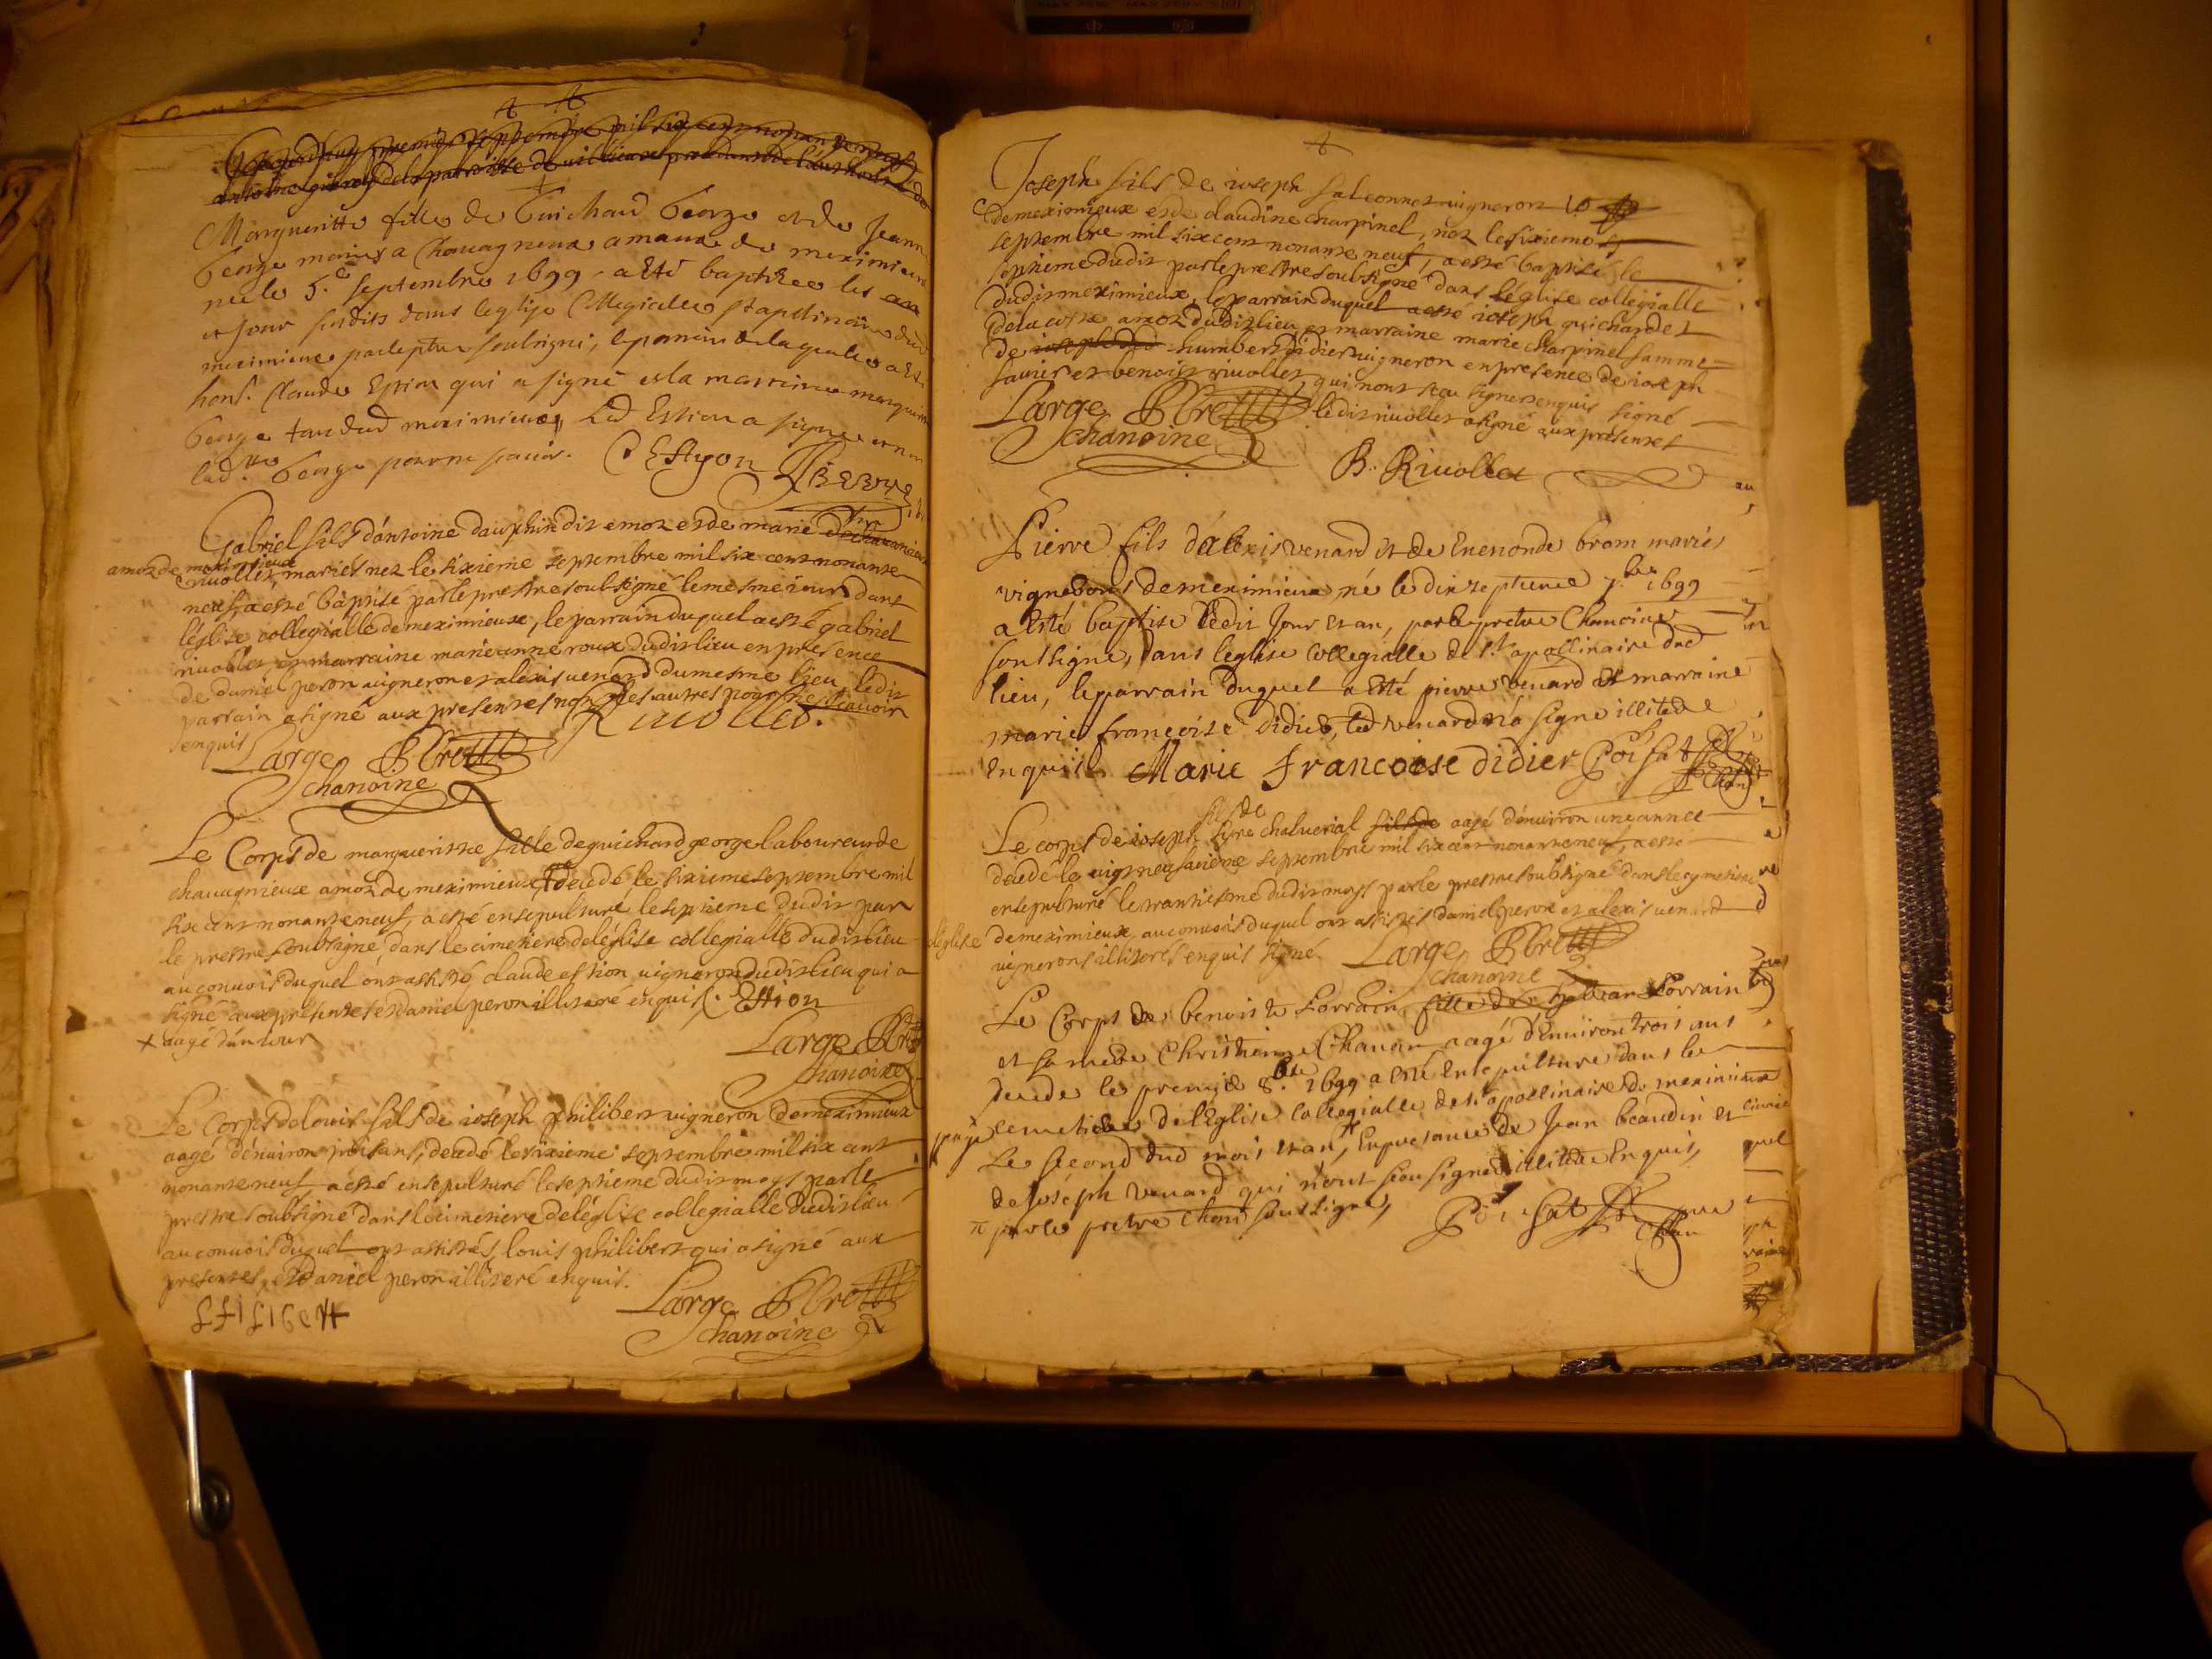 Margueritte fille de Guichard George et de Jeanne
George mariés a Chauagneux amaux de meximieux
née le 5.e septembre 1699. a esté baptizee les an
et jour susdits dans leglise Collegialle st apolinaire dud
meximieux par le ptre soubsigné, le parrin de laquelle a esté
hons. Claude Estion qui a signé et la marrine marguerite
George tou dud meximieux, Led Estion a signé et non
lad.tte George pour ne sauoir. C Estyon
Gabriel fils d'antoine dauphin dit amoz et de marie
amoz de meximieux
riuollet, mariés nez le sixieme septembre mil six cent nonante
neuf, a esté baptise par le prestre soubsigné le mesme iour dans
léglise collegialle de meximieux, le parrain duquel a esté gabriel
riuollet et marraine marie anne roux dudit lieu en presence
de daniel peron uigneron et alexis uenard du mesme lieu, ledit
parrain a signé aux presentes non les autres pour ne scauoir
enquis Riuollet.
Large Pbre
chanoine
Le Corps de marguerite fille de guichard george laboureur de
chauagnieux amoz de meximieux + decedé le sixieme septembre mil
six cent nonante neuf, a esté ensepulturé le septieme dudit par
le prestre soubsigné, dans le cimetiere de léglise collegialle dudit lieu
au conuoit duquel ont assisté claude estion, uigneron dudit lieu qui a
signé aux presentes et daniel peron illiteré enquis C. Estion
+ aagé d'un iour
Large Pbre
chanoine
Le Corps de louis fils de ioseph philibert uigneron de meximieux
aagé d'enuiron trois ans, decedé le sixieme septembre mil six cent
nonante neuf a esté ensepulturé le septieme dudit moys par le
prestre soubsigné dans le cimetiere de léglise collegialle dudit lieu
au conuoit duquel ont assistés, louis philibert qui a signé aux
presentes, et daniel peron illiteré enquis.
Large Pbre
chanoine
Joseph fils de ioseph faleonnet uigneron
de meximieux et de claudine charpinel, nez le sixieme
septembre mil six cent nonante neuf, a esté baptisé le
septieme dudit par le prestre soubsigné dans léglise collegialle
dudit meximieux, le parrain duquel a esté ioseph guichardet
de la coste amoz dudit lieu et marraine marie charpinel famme
de humbert didier uigneron en presence de ioseph
fauier et benoist riuollet, qui n'ont sceu signer enquis signé
Large Pbre ledit riuollet a signé aux presentes
chanoine
B. Riuollet
Pierre fils d'alexis venard et de Enemonde brom mariés
vignerons de meximieux né le dix septieme 7.bre 1699
a esté baptise ledit Jour et an, par le pretre Chanoine
soussigné, dans leglise Collegialle de st apollinaire dud
lieu, le parrain duquel a esté pierre venard et marraine
marie françoise didier, led venard n'a signe illiteré
Enquis Marie Francoise didier Poisat
fils de
Le corps de ioseph chaluerial aagé d'enuiron une année
decedé le uigt neufuieme septembre mil six cent nonante neuf, a esté
ensepulturé le trantiesme dudit moys par le prestre soubsigné dans le cymetiere
léglise de meximieux, au conuoit duquel ont assistés daniel peron et alexis uenard
uignerons illiterés enquis signé. Large Pbre
chanoine
Le Corps de benoiste Lorrain fille de Lorrain
et sa mere Christienne Chanan aagé d'Enuiron trois ans
decede le premier 8.bre 1699 a esté Ensepulture dans le
cemetiere de l'Eglise Collegialle de st apollinaire de meximieux
Le second dud mois et an, En presance de Jean beaudin et
de Joseph venard qui n'ont sceu signer illiteré Enquis,
π par le pretre Chane soussigné, Poisat